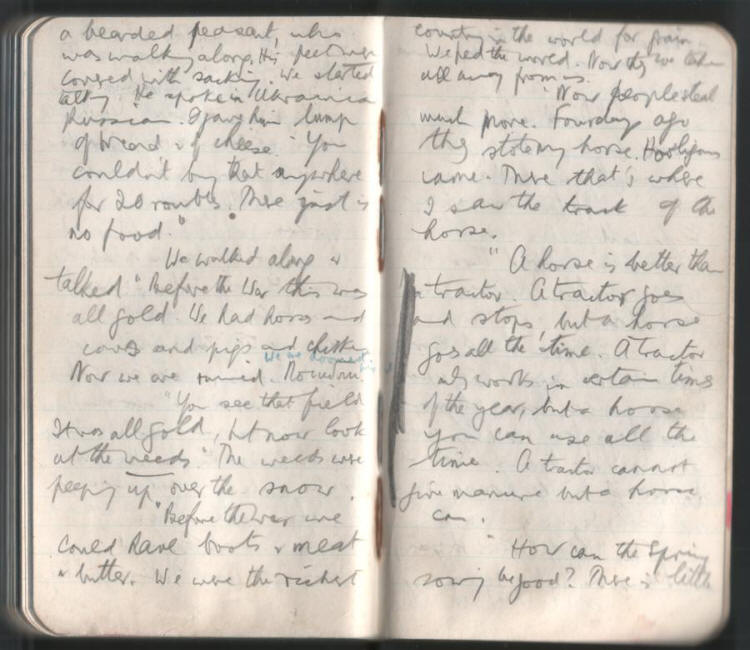 a bearded peasant, who
was walking along. His feet were
covered with sacking. We started
talking. He spoke in Ukrainian
Russian. I gave him lump
of bread & of cheese. "You
couldn't buy that anywhere
for 20 roubles. There just is
no food."
We walked along &
talked "Before the War this was
all gold. We had horses and
cows and pigs and chickens
We are doomed
Now we are ruined.
"You see that field
It was all gold, but now look
at the weeds" The weeds were
peeping up over the snow.
"Before the war we
could have boots & meat
& butter. We were the richest
country in the world for grain.
We fed the world. Now they've taken
all away from us.
"Now people steal
much more. Four days ago
they stole my horse. Hooligans
came. There that's where
I saw the track of the
horse.
"A horse is better than
a tractor. A tractor goes
and stops, but a horse
goes all the time. A tractor
only works in certain times
of the year, but a horse
you can use all the
time. A tractor cannot
give manure but a horse
can.
"How can the Spring
sowing be good? There is little